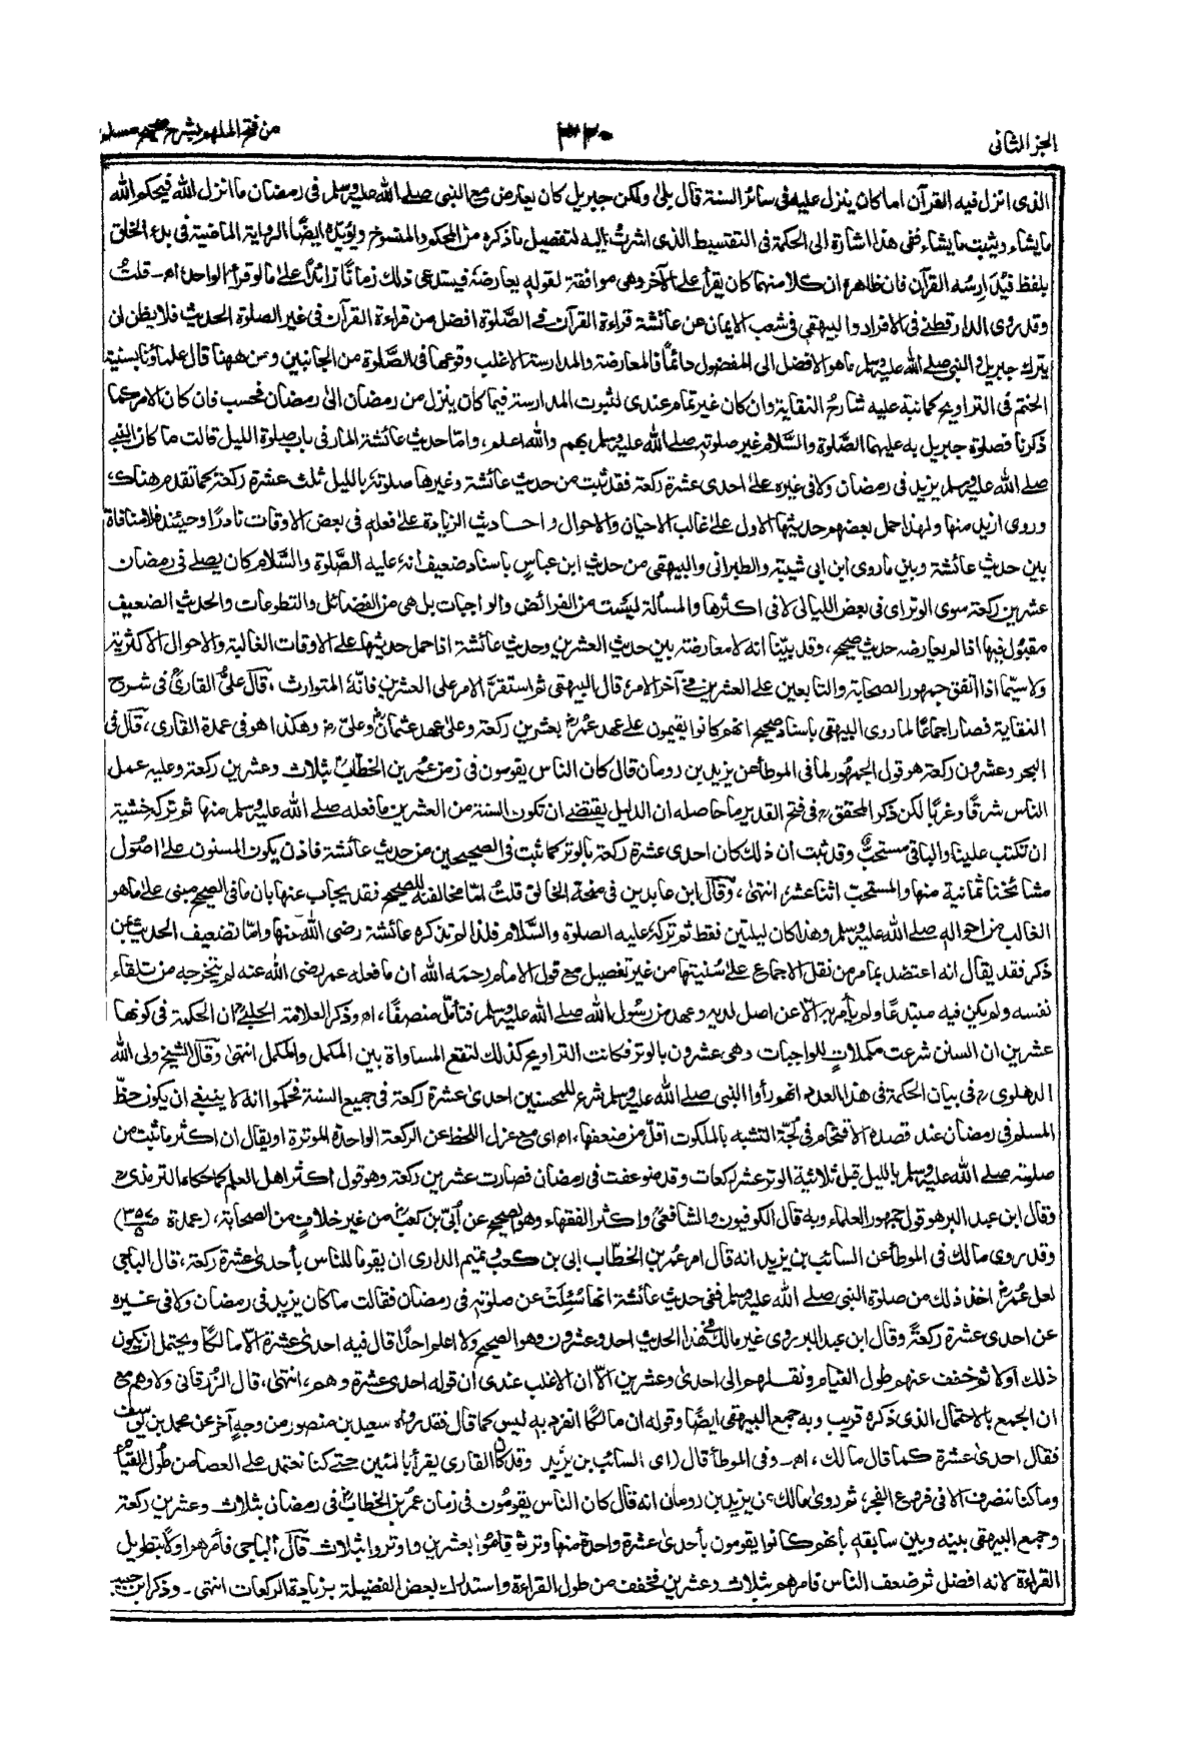 الجزء الثانى
٣٢٠
من فتح الملهم بشرح صحيح مسلم
الذى انزل فيه القرآن اما كان ينزل عليه فى سائر السنة قال بلى ولكن جبريل كان يعارض مع النبى صلے الله عليه وسلم فى رمضان ما انزل الله فيحكم الله
ما يشاء ويثبت ما يشاء ففى هذا اشارة الى الحكمة فى التقسيط الذى اشرتُ اليه لتفصيل ما ذكره من المحكم والمنسوخ ويؤيده ايضًا الرواية الماضية فى بدء الخلق
بلفظ فيُدَارِسُه القرآن فان ظاهره ان كلا منهما كان يقرأ على الآخر وهى موافقة لقوله يعارضه فيستدعى ذلك زمانًا زائدًا على ما لو قرأ الواحد اهـ ـ قلتُ
وقد روى الدارقطنى فى الافراد والبيهقى فى شعب الايمان عن عائشة قراءة القرآن فے الصَّلوة افضل من قراءة القرآن فى غير الصلوة الحديث فلا يظن ان
يترك جبريل والنبى صلے الله عليه وسلم ما هو الافضل الى المفضول دائمًا فالمعارضة والمدارسة الاغلب وقوعها فى الصَّلوة من الجانبين ومن ههنا قال علماؤنا بسنية
الختم فى التراويح كما نبّه عليه شارح النقاية وان كان غير تمام عندى لثبوت المدارسة فيما كان ينزل من رمضان الى رمضان فحسب فان كان الامر كما
ذكرنا فصلوة جبريل به عليهما الصَّلوة والسَّلام غير صلوته صلے الله عليه وسلم بهم والله اعلم، وامّا حديث عائشة المار فى باب صلوة الليل قالت ما كان النبى
صلے الله عليه وسلم يزيد فى رمضان ولا فى غيره على احدى عشرة ركعة فقد ثبت من حديث عائشة وغيرها صلوته بالليل ثلث عشرة ركعة كما تقدم هناك،
وروى ازيد منها ولهذا حمل بعضهم حديثها الاول على غالب الاحيان والاحوال واحاديث الزيادة على فعله فى بعض الاوقات نادرًا وحينئذ فلا منافاة
بين حديث عائشة وبين ما روى ابن ابى شيبة والطبرانى والبيهقى من حديث ابن عباس باسناد ضعيف انه عليه الصَّلوة والسَّلام كان يصلے فى رمضان
عشرين ركعة سوى الوتر اى فى بعض الليالى لا فى اكثرها والمسألة ليست من الفرائض والواجبات بل هى من الفضائل والتطوعات والحديث الضعيف
مقبول فيها اذا لم يعارضه حديث صحيح، وقد بيّنا انه لا معارضة بين حديث العشرين وحديث عائشة اذا حمل حديثها على الاوقات الغالبة والاحوال الاكثرية
ولا سيّما اذا اتفق جمهور الصحابة والتابعين على العشرين فى آخر الامر، قال البيهقى ثم استقرّ الامر على العشرين فانّه المتوارث، قال علىُّ القارىُّ فى شرح
النقاية فصار اجماعًا لما روى البيهقى باسناد صحيح انهم كانوا يقيمون على عهد عمرؓ بعشرين ركعة وعلى عهد عثمانؓ وعلىّؓ وهكذا هو فى عمدة القارى، قال فى
البحر وعشرون ركعة هو قول الجمهور لما فى الموطأ عن يزيد بن رومان قال كان الناس يقومون فى زمن عمر بن الخطابؓ بثلاث وعشرين ركعة وعليه عمل
الناس شرقًا وغربًا لكن ذكر المحقق رح فى فتح القدير ما حاصله ان الدليل يقتضے ان تكون السنة من العشرين ما فعله صلے الله عليه وسلم منها ثم تركه خشية
ان تكتب علينا والباقى مستحبٌ وقد ثبت أن ذلك كان احدى عشرة ركعة بالوتر كما ثبت فى الصحيحين من حديث عائشة فاذن يكون المسنون على اصُول
مشائخنا ثمانية منها والمستحب اثنا عشر، انتهىٰ، وقال ابن عابدين فى منحة الخالق قلت امّا مخالفته للصحيح فقد يجاب عنها بان ما فى الصحيح مبنى على ما هو
الغالب من احواله صلے الله عليه وسلم وهذا كان ليلتين فقط ثم تركه عليه الصلوة والسَّلام فلذا لم تذكره عائشة رضى الله عنها وامّا تضعيف الحديث بمن
ذكر فقد يقال انه اعتضد بما مر من نقل الاجماع على سُنيتها من غير تفصيل مع قول الامام رحمه الله ان ما فعله عمر رضى الله عنه لم يتخرجه من تلقاء
نفسه ولم يكن فيه مبتدعًا ولم يأمر به الّا عن اصل لديه وعهد من رسُول الله صلے الله عليه وسلم فتأمّل منصفًا، اهـ وذكر العلامة الحلبىؒ ان الحكمة فى كونها
عشرين ان السنن شرعت مكملات للواجبات وهى عشرون بالوتر فكانت التراويح كذلك لتقع المساواة بين المكمل والمكمل انتهىٰ وقال الشيخ ولى الله
الدهلوى رح فى بيان الحكمة فى هذا العدد انهم رأوا النبى صلے الله عليه وسلم شرع للمحسنين احدى عشرة ركعة فى جميع السنة فحكموا انه لا ينبغے ان يكون حظّ
المسلم فى رمضان عند قصده الاقتحام فى لُجّة التشبه بالملكوت اقلّ من ضعفها، اهـ اى مع عزل اللحظ عن الركعة الواحدة الموترة او يقال ان اكثر ما ثبت من
صلوته صلے الله عليه وسلم بالليل قبل ثلاثية الوتر عشر ركعات وقد ضوعفت فى رمضان فصارت عشرين ركعة وهو قول اكثر اهل العلم كما حكاه الترمذى رح
وقال ابن عبد البر هو قول جمهور العلماء وبه قال الكوفيون والشافعىؒ واكثر الفقهاء وهو الصحيح عن أُبىّ بن كعبؓ من غير خلاف من الصحابة، (عمدة ص٣٥٧ ج٥)
وقد روى مالك فى الموطأ عن السائب بن يزيد انه قال امر عمر بن الخطّاب ابى بن كعب وتميم الدارى ان يقوما للناس بأحدىٰ عشرة ركعة، قال الباجى
لعل عمرؓ اخذ ذلك من صلوة النبى صلے الله عليه وسلم ففى حديث عائشة انها سُئِلت عن صلوته فى رمضان فقالت ما كان يزيد فى رمضان ولا فى غيره
عن احدى عشرة ركعةً وقال ابن عبد البر روى غير مالك فى هذا الحديث احد وعشرون وهو الصحيح ولا اعلم احدًا قال فيه احدىٰ عشرة الّا مالكًا ويحتمل ان يكون
ذلك اولا ثم خفف عنهم طول القيام ونقلهم الى احدى وعشرين الّا ان الاغلب عندى ان قوله احدى عشرة وهم، انتهىٰ، قال الزرقانى ولا وهم مع
ان الجمع بالاحتمال الذى ذكره قريب وبه جمع البيهقى ايضًا وقوله ان مالكًا انفرد به ليس كما قال فقد رواه سعيد بن منصور من وجهٍ آخر عن محمد بن يوسف
فقال احدىٰ عشرة كما قال مالك، اهـ ـ وفى الموطأ قال (اى السائب بن يزيد وقد كان القارى يقرأ بالمئين حتے كنا نعتمد على العصا من طُول القيام
وما كنا ننصرف الا فى فروع الفجر، ثم روىٰ مالك عن يزيد بن رومان انه قال كان الناس يقومُون فى زمان عمر بن الخطابؓ فى رمضان بثلاث وعشرين ركعة
وجمع البيهقى بينه وبين سابقه بأنهم كانوا يقومون بأحدىٰ عشرة واحدة منها وترة ثم قاموا بعشرين واوتروا بثلاث قال الباجى فأمرهم اولا بتطويل
القراءة لانه افضل ثم ضعف الناس فامرهم بثلاث وعشرين فخفف من طول القراءة واستدرك بعض الفضيلة بزيادة الركعات انتهى ـ وذكر ابن حبيب